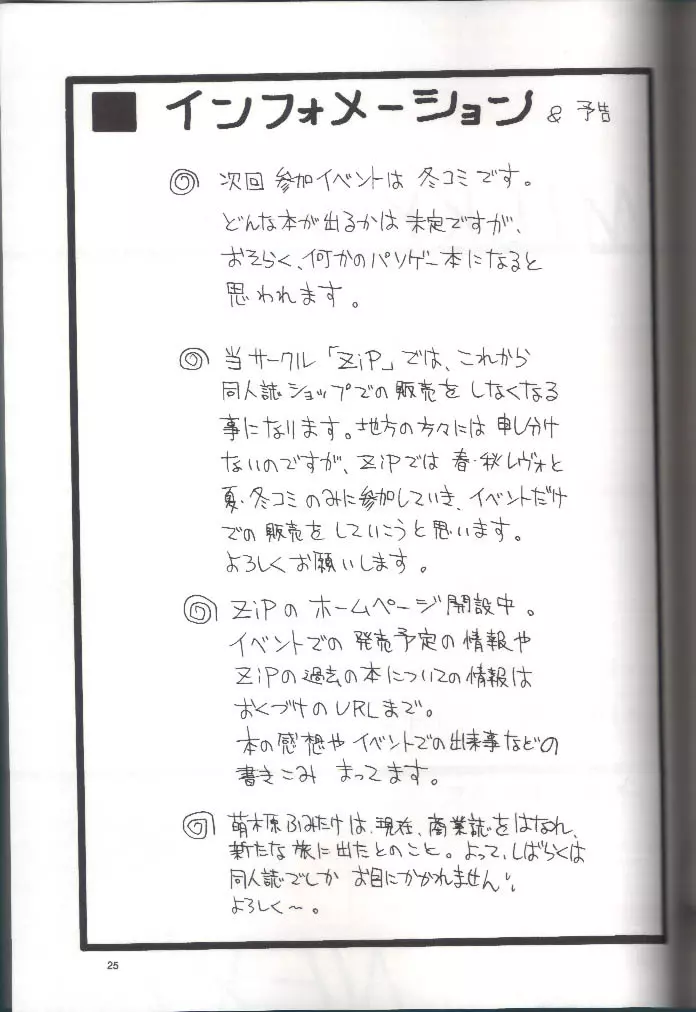 ■ インフォメーション & 予告
◎ 次回 参加イベントは 冬コミです。
どんな本が出るかは 未定ですが、
おそらく、何かのパソゲー本になると
思われます。
◎ 当サークル「ZiP」では、これから
同人誌ショップでの販売をしなくなる
事になります。地方の方々には申し分け
ないのですが、ZiPでは 春・秋レヴォと
夏・冬コミのみに参加していき、イベントだけ
での販売をしていこうと思います。
よろしくお願いします。
◎ ZiPのホームページ開設中。
イベントでの発売予定の情報や
ZiPの過去の本についての情報は
おくづけのURLまで。
本の感想やイベントでの出来事などの
書きこみ まってます。
◎ 萌木原ふみたけは、現在、商業誌をはなれ、
新たな旅に出たとのこと。よって、しばらくは
同人誌でしか お目にかかれません!、
よろしく〜。
25